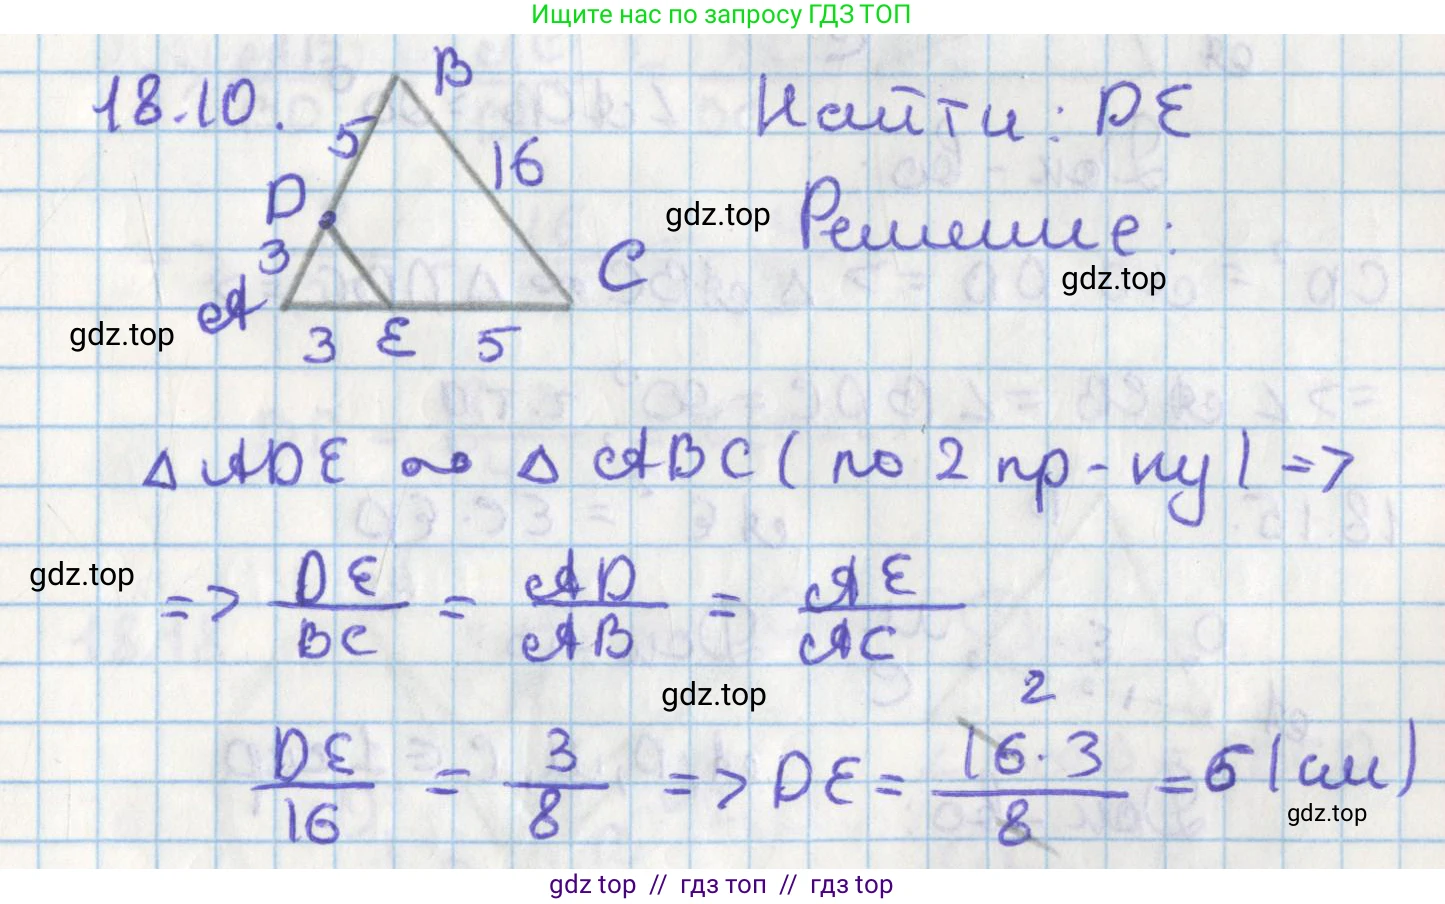 Ищите нас по запросу ГДЗ ТОП
18.10.
B
5
16
D
3
A
3
E
5
C
Найти: DE
Решение:
gdz.top
gdz.top
gdz.top
△ ADE ∾ △ ABC ( по 2 пр-ку ) =>
gdz.top
=> DE/BC = AD/AB = AE/AC
gdz.top
2
DE/16 = 3/8 => DE = 16·3/8 = 6 (см)
gdz.top
gdz top // гдз топ // гдз top